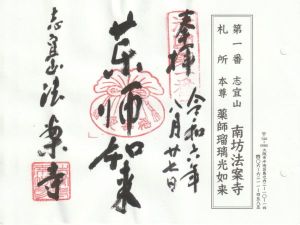 第一番 志宜山 南坊法案寺
札所 本尊 薬師瑠璃光如来
奉拝 令和六年八月廿七日
薬師如来
志宜山法案寺